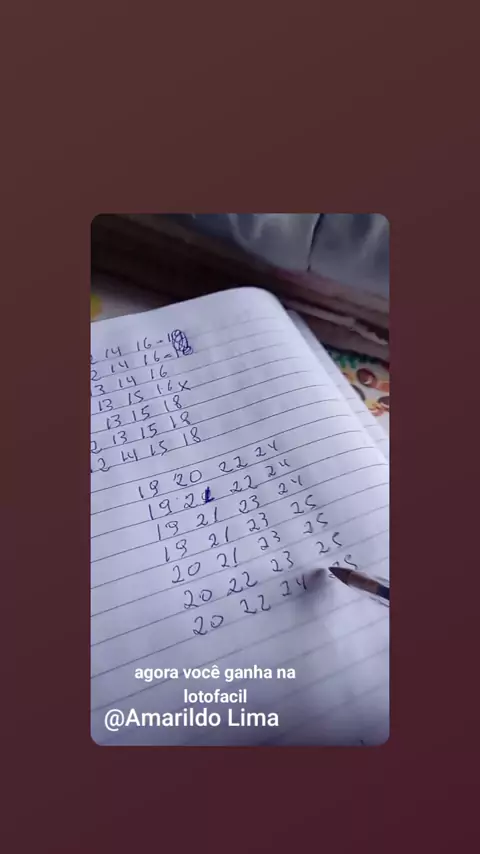 2 14 16-18
2 14 16-18
3 14 16
13 15 16x
13 15 18
2 13 15 18
12 14 15 18
19 20 22 24
19 21 22 24
19 21 23 24
19 21 23 25
20 21 23 25
20 22 23 25
20 22 24 25
agora você ganha na
lotofacil
@Amarildo Lima